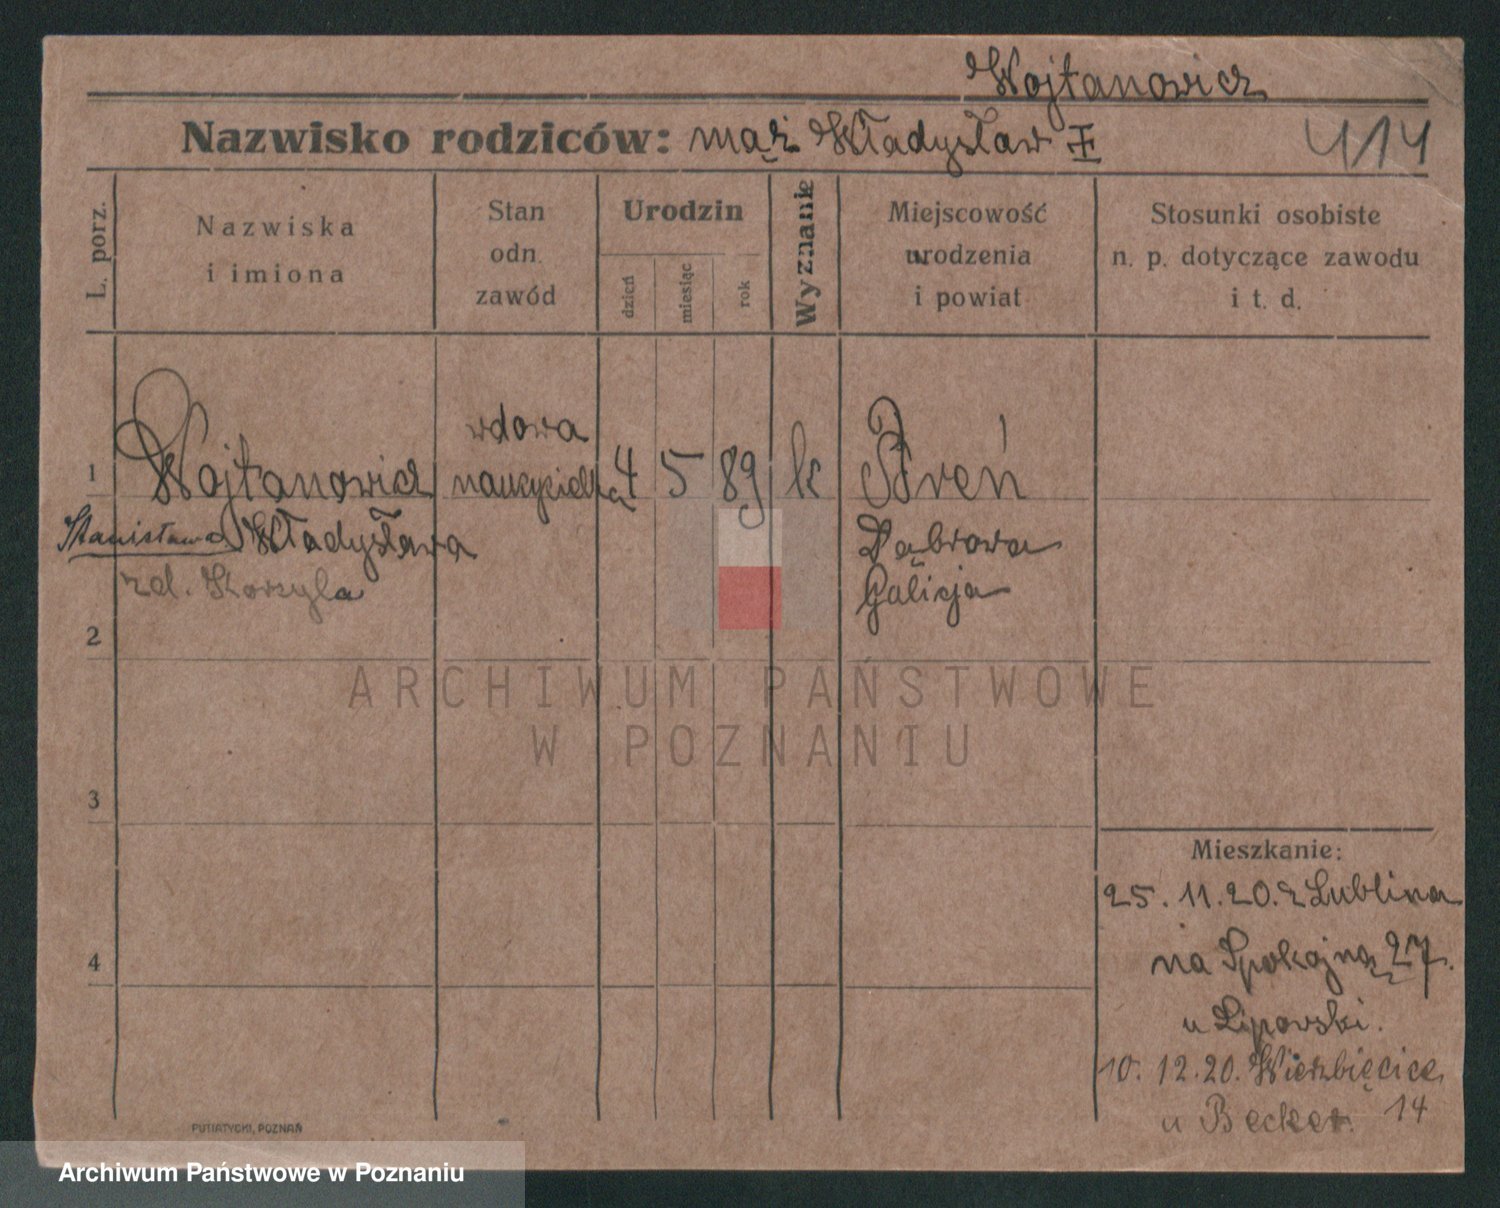 Wojtanowicz
Nazwisko rodziców: mąż Władysław
414
L. porz.
Nazwiska
i imiona
Stan
odn.
zawód
Urodzin
dzień
miesiąc
rok
Wyznanie
Miejscowość
urodzenia
i powiat
Stosunki osobiste
n. p. dotyczące zawodu
i t. d.
wdowa
1 Wojtanowicz nauczycielka 4 5 89 k Breń
Stanisława Władysława Dąbrowa
zd. Korzyla Galicja
2
ARCHIWUM PAŃSTWOWE
W POZNANIU
3
Mieszkanie:
25. 11. 20. z Lublina
4 na Spokojną 27.
u Lipowski.
10. 12. 20. Wierzbięcice
u Becker. 14
PUTIATYCKI, POZNAŃ
Archiwum Państwowe w Poznaniu